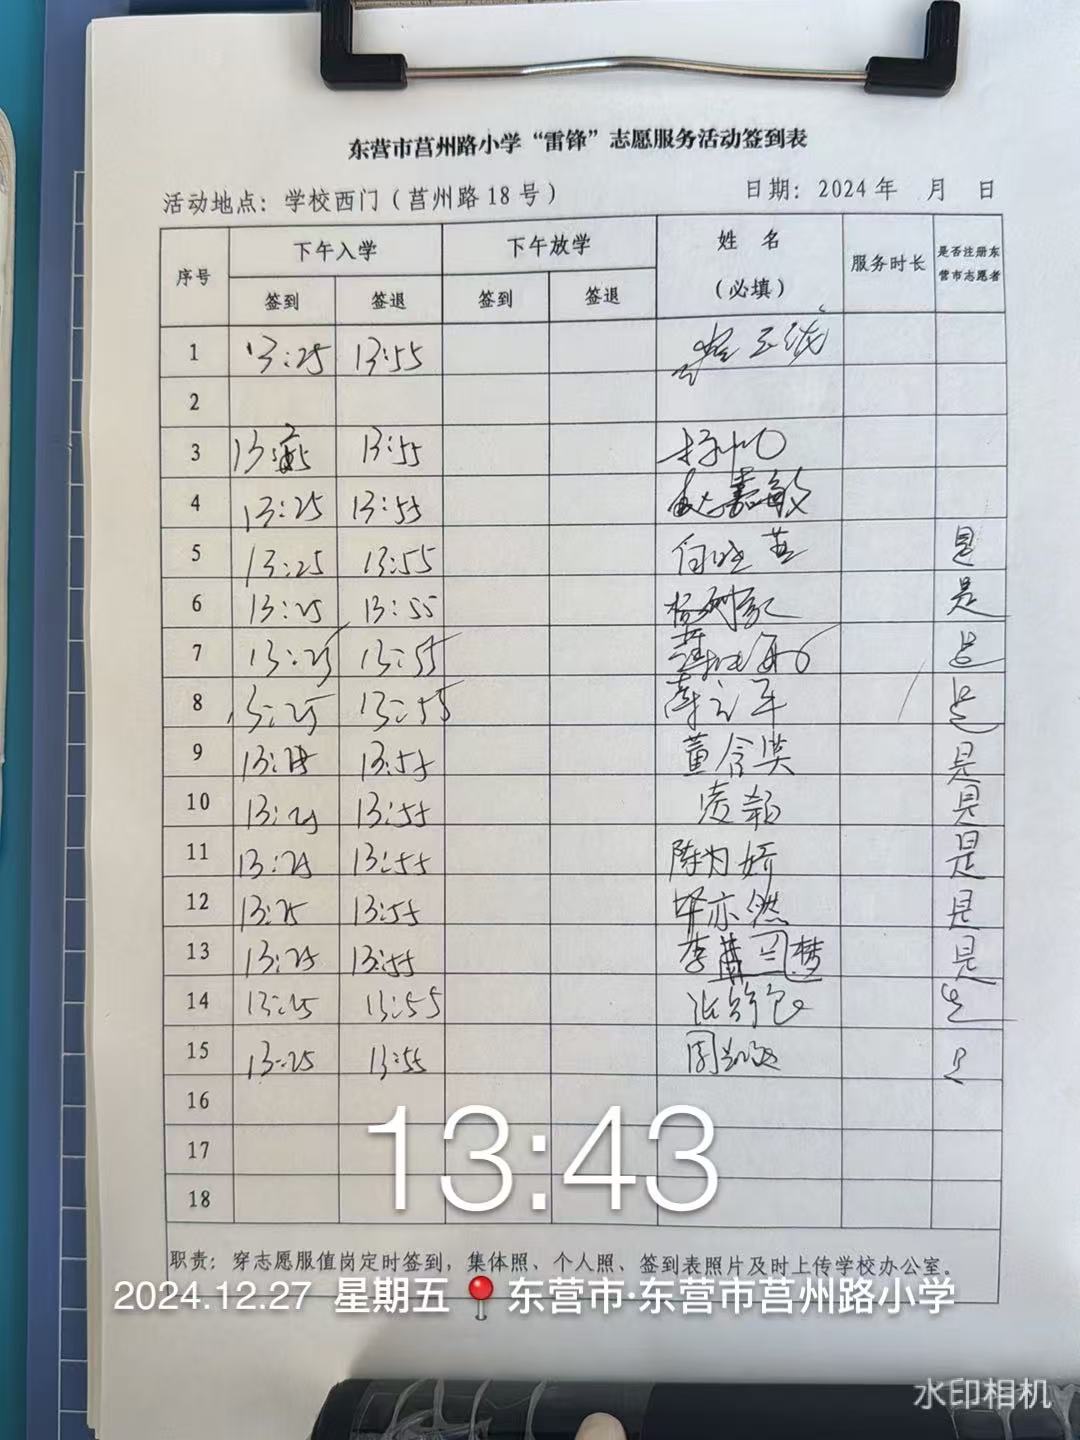 东营市莒州路小学“雷锋”志愿服务活动签到表
活动地点：学校西门（莒州路18号） 日期：2024年 月 日
序号 下午入学 下午放学 姓名（必填） 服务时长 是否注册东营市志愿者
签到 签退 签到 签退
1 13:25 13:55
2
3 13: 13:55
4 13:25 13:55 赵嘉敏
5 13:25 13:55 是
6 13:25 13:55 是
7 13:25 13:55 是
8 13:25 13:55 是
9 13:25 13:55 董含笑 是
10 13:25 13:55 是
11 13:25 13:55 陈为娇 是
12 13:25 13:55 毕亦然 是
13 13:25 13:55 李 梦 是
14 13:25 13:55 是
15 13:25 13:55 周
16
17
18
13:43
职责：穿志愿服值岗定时签到，集体照、个人照、签到表照片及时上传学校办公室。
2024.12.27 星期五 东营市·东营市莒州路小学
水印相机